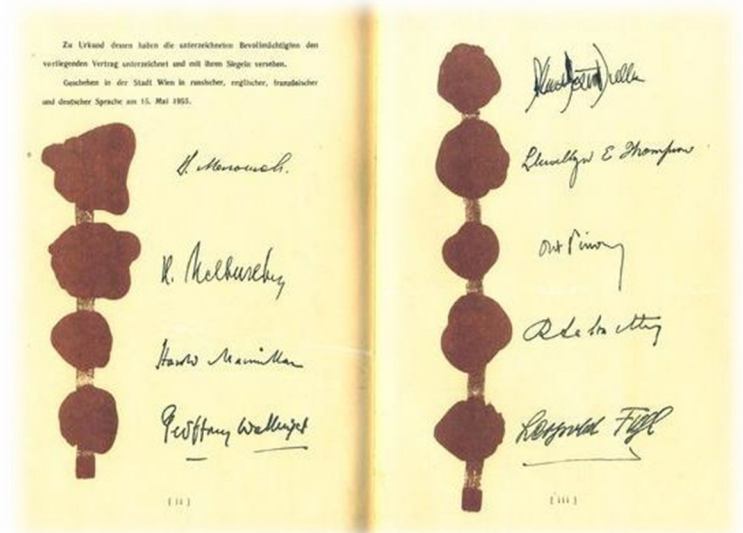 Zu Urkund dessen haben die unterzeichneten Bevollmächtigten den
vorliegenden Vertrag unterzeichnet und mit ihren Siegeln versehen.
Geschehen in der Stadt Wien in russischer, englischer, französischer
und deutscher Sprache am 15. Mai 1955.
Harold Macmillan
Geoffrey Wallinger
[ii]
Llewellyn E Thompson
Ant Pinay
Leopold Figl
[iii]